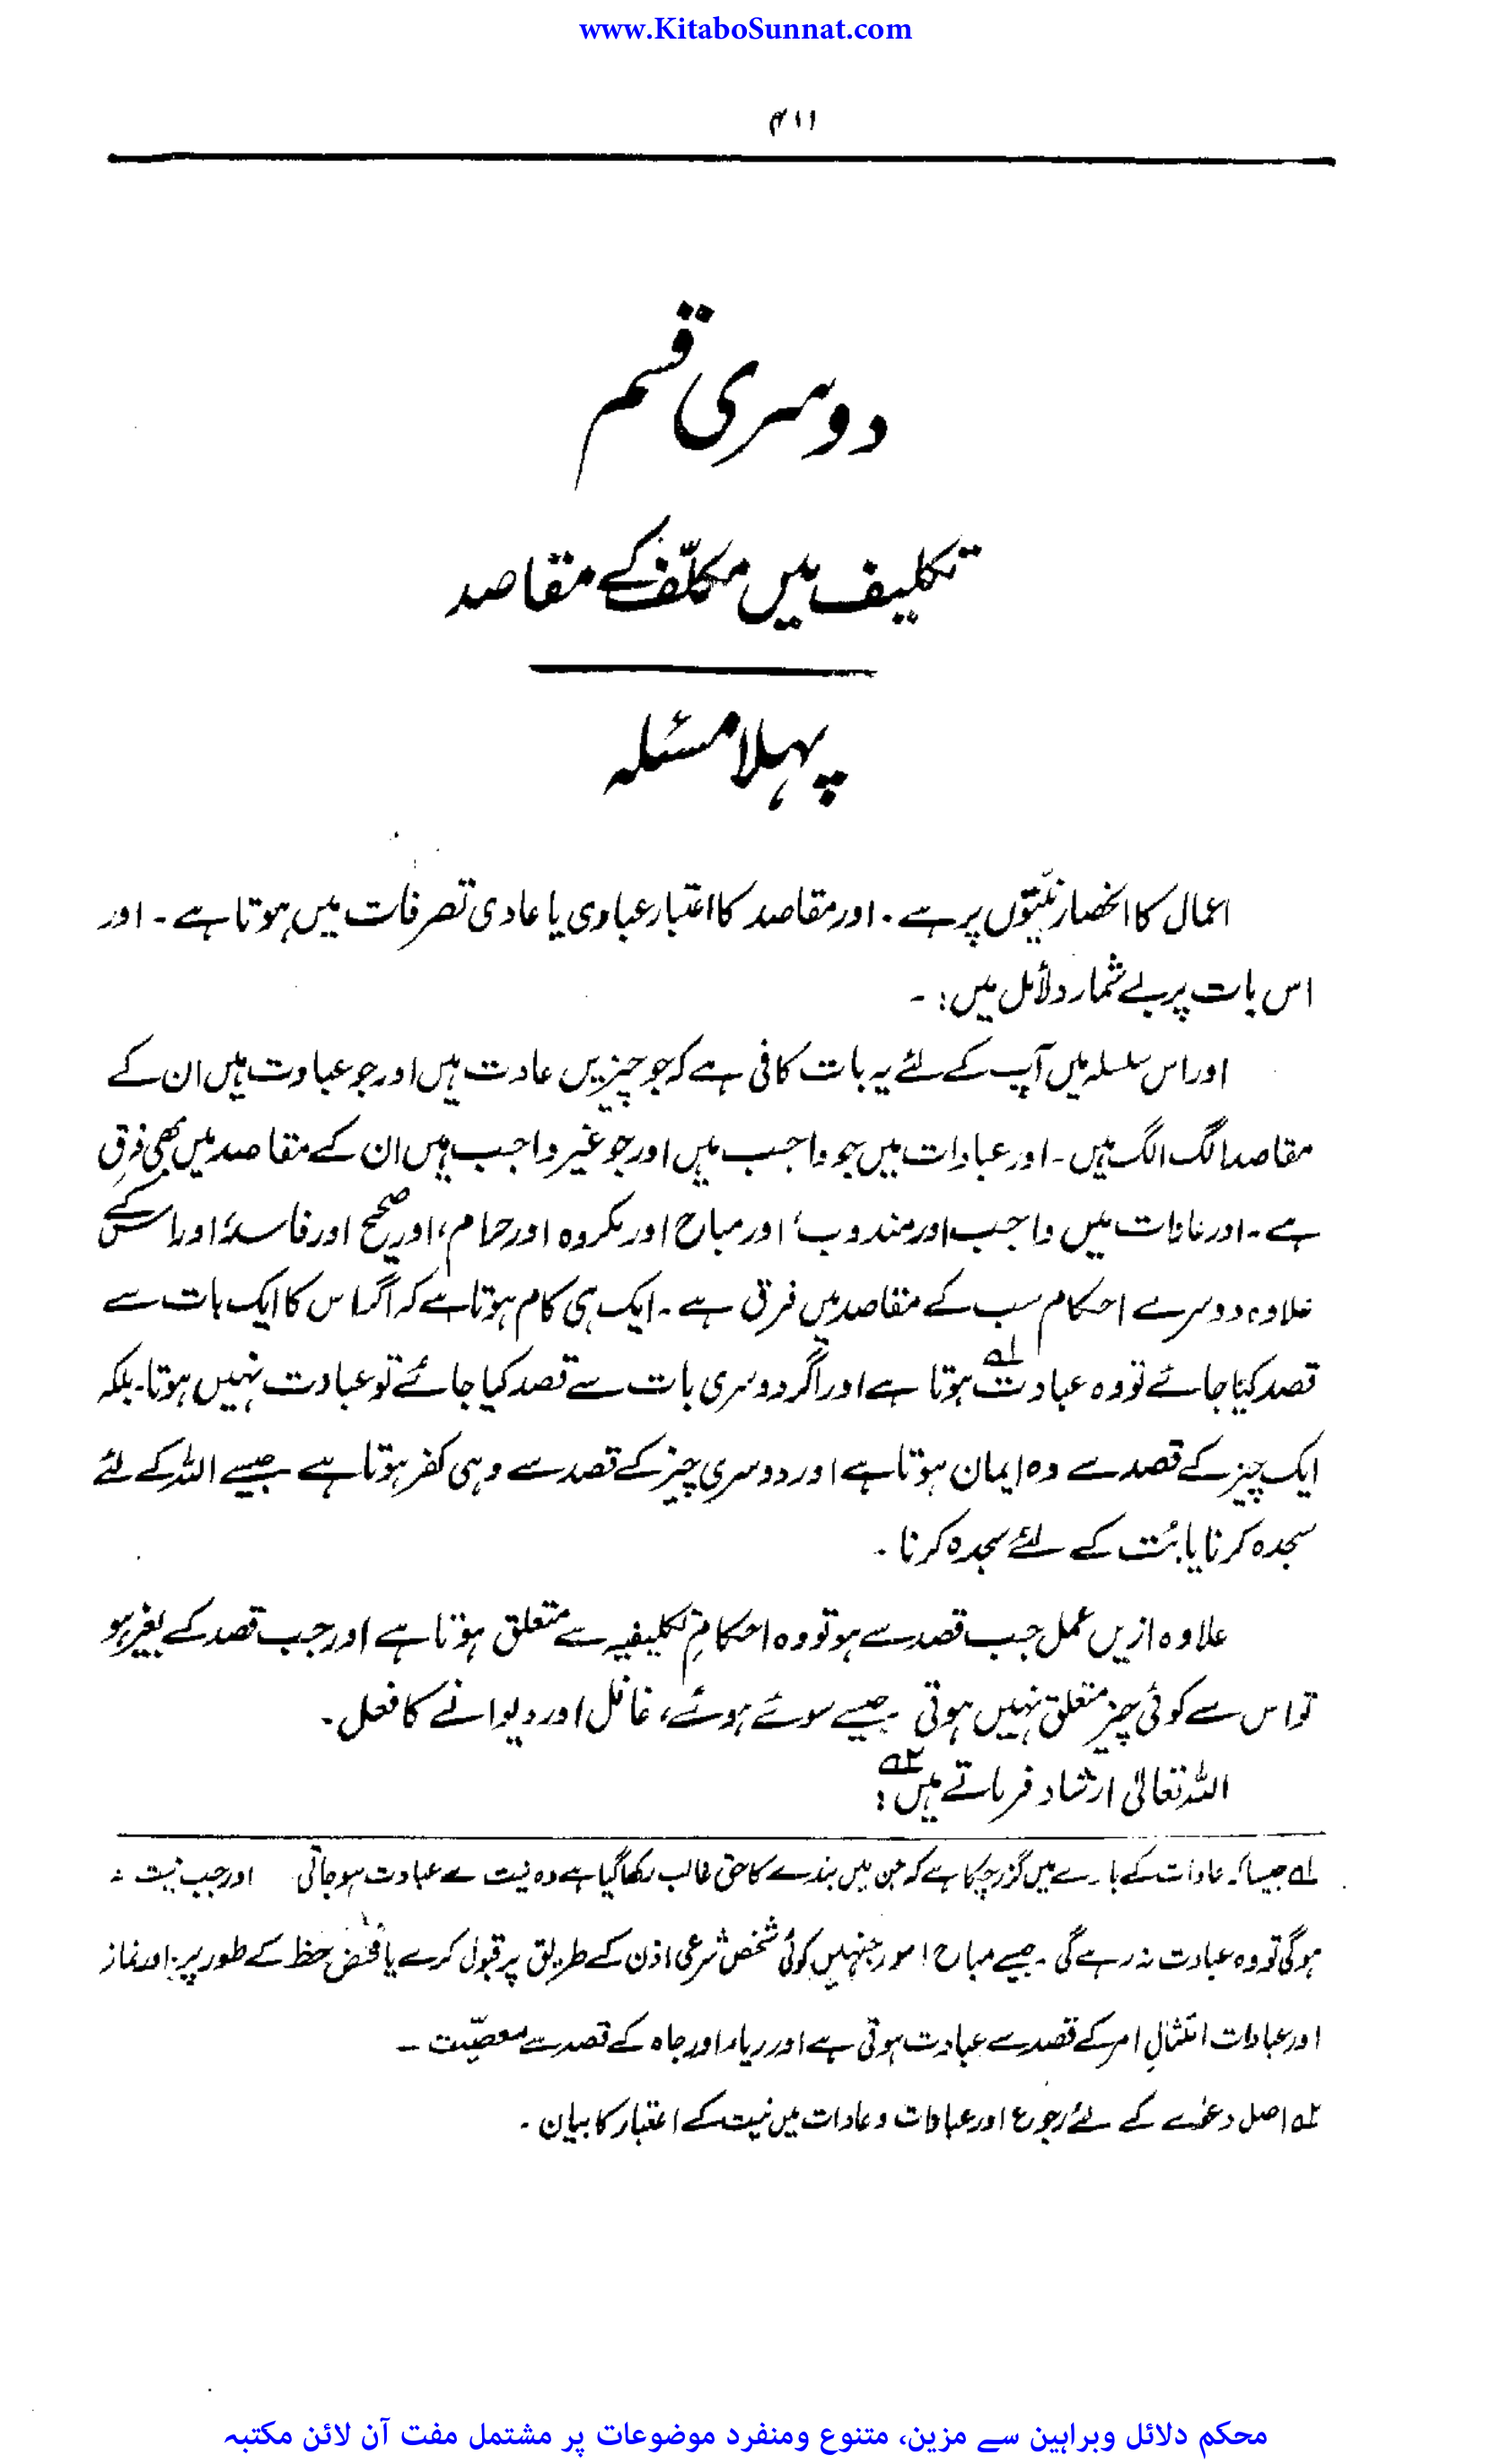 www.KitaboSunnat.com
۴۱۱
دوسری قسم
تکلیف میں مکلّف کے مقاصد
پہلا مسئلہ
اعمال کا انحصار نیّتوں پر ہے۔ اور مقاصد کا اعتبار عبادی یا عادی تصرفات میں ہوتا ہے۔ اور
اس بات پر بے شمار دلائل ہیں:۔
اور اس سلسلہ میں آپ کے لئے یہ بات کافی ہے کہ جو چیزیں عادت ہیں اور جو عبادت ہیں ان کے
مقاصد الگ الگ ہیں۔ اور عبادات میں جو واجب ہیں اور جو غیر واجب ہیں ان کے مقاصد میں بھی فرق
ہے۔ اور عادات میں واجب اور مندوب، اور مباح اور مکروہ اور حرام، اور صحیح اور فاسد، اور اس کے
علاوہ دوسرے احکام سب کے مقاصد میں فرق ہے۔ ایک ہی کام ہوتا ہے کہ اگر اس کا ایک بات سے
قصد کیا جائے تو وہ عبادت ہوتا ہے اور اگر دوسری بات سے قصد کیا جائے تو عبادت نہیں ہوتا۔ بلکہ
ایک چیز کے قصد سے وہ ایمان ہوتا ہے اور دوسری چیز کے قصد سے وہی کفر ہوتا ہے جیسے اللہ کے لئے
سجدہ کرنا یا بُت کے لئے سجدہ کرنا۔
علاوہ ازیں عمل جب قصد سے ہو تو وہ احکامِ تکلیفیہ سے متعلق ہوتا ہے اور جب قصد کے بغیر ہو
تو اس سے کوئی چیز متعلق نہیں ہوتی جیسے سوئے ہوئے، غافل اور دیوانے کا فعل۔
اللہ تعالیٰ ارشاد فرماتے ہیں ۲ہ:
۱ہ جیسا کہ عادات کے بارے میں گزر چکا ہے کہ جن میں بندے کا حق غالب رکھا گیا ہے وہ نیت سے عبادت ہو جاتی اور جب نیت نہ
ہوگی تو وہ عبادت نہ رہے گی۔ جیسے مباح امور جنہیں کوئی شخص شرعی اذن کے طریق پر قبول کرے یا محض حظ کے طور پر، اور نماز
اور عبادات امتثالِ امر کے قصد سے عبادت ہوتی ہے اور ریاء اور جاہ کے قصد سے معصیّت۔
۲ہ اصل دعوے کے لئے رجوع اور عبادات و عادات میں نیت کے اعتبار کا بیان۔
محکم دلائل وبراہین سے مزین، متنوع ومنفرد موضوعات پر مشتمل مفت آن لائن مکتبہ